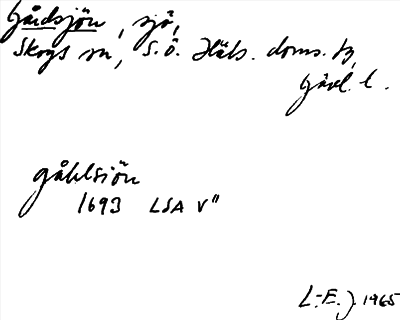 Gårdsjön, sjö,
Skogs sn, S.Ö. Häls. doms. tg,
Gävl. l.
gåhlsiön
1693 LSA V"
L-E. J. 1965